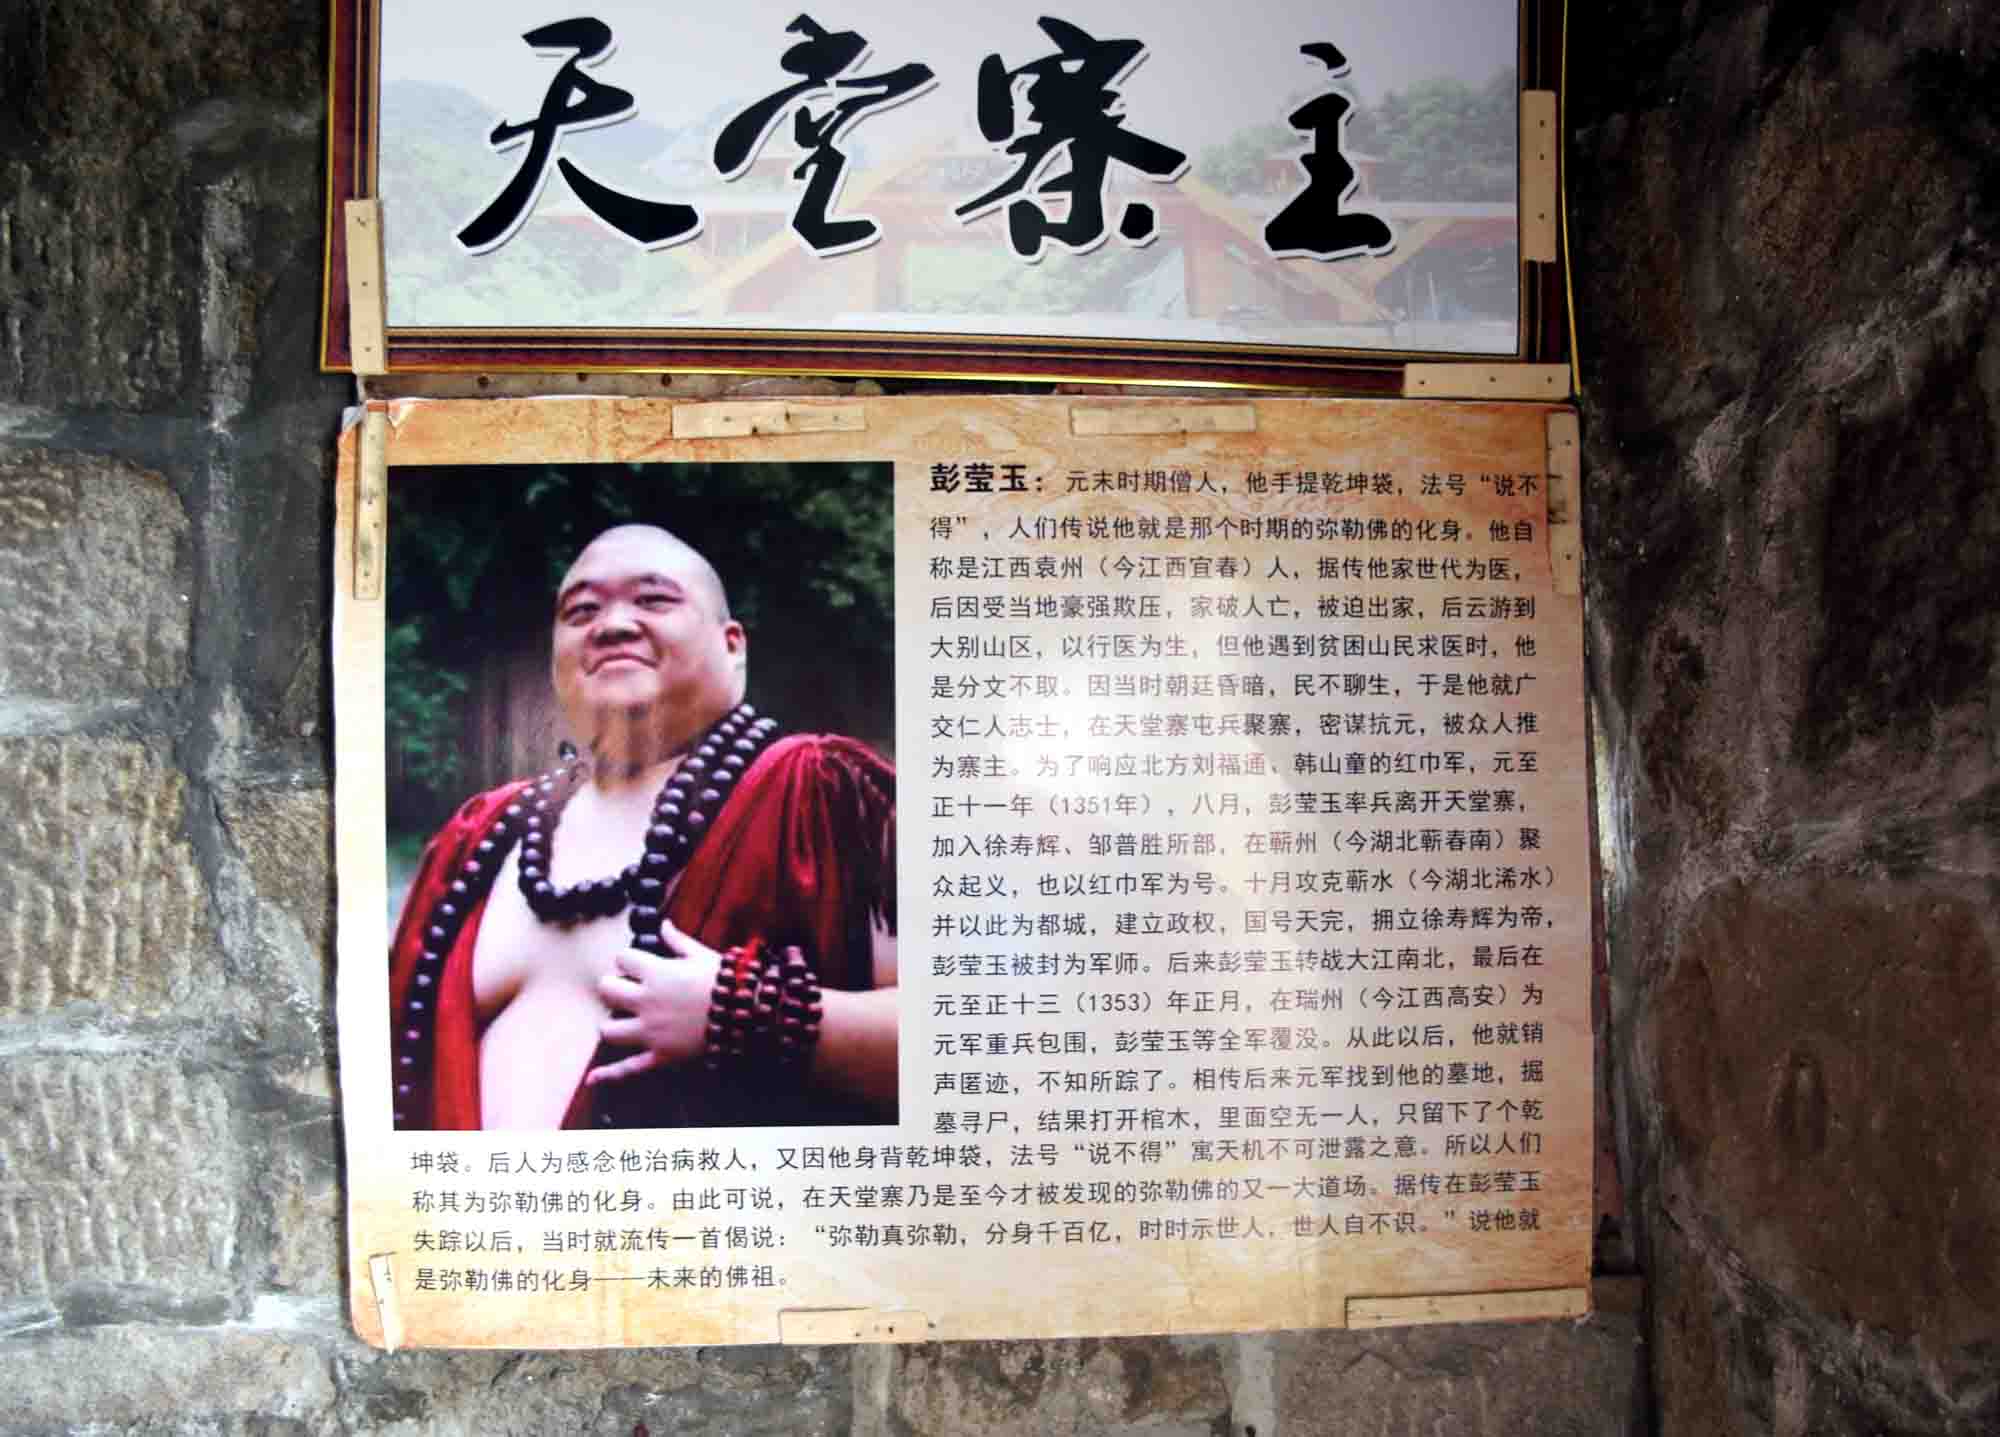 天堂寨主
彭莹玉：元末时期僧人，他手提乾坤袋，法号“说不
得”，人们传说他就是那个时期的弥勒佛的化身。他自
称是江西袁州（今江西宜春）人，据传他家世代为医，
后因受当地豪强欺压，家破人亡，被迫出家，后云游到
大别山区，以行医为生，但他遇到贫困山民求医时，他
是分文不取。因当时朝廷昏暗，民不聊生，于是他就广
交仁人志士，在天堂寨屯兵聚寨，密谋抗元，被众人推
为寨主。为了响应北方刘福通、韩山童的红巾军，元至
正十一年（1351年），八月，彭莹玉率兵离开天堂寨，
加入徐寿辉、邹普胜所部，在蕲州（今湖北蕲春南）聚
众起义，也以红巾军为号。十月攻克蕲水（今湖北浠水）
并以此为都城，建立政权，国号天完，拥立徐寿辉为帝，
彭莹玉被封为军师。后来彭莹玉转战大江南北，最后在
元至正十三（1353）年正月，在瑞州（今江西高安）为
元军重兵包围，彭莹玉等全军覆没。从此以后，他就销
声匿迹，不知所踪了。相传后来元军找到他的墓地，掘
墓寻尸，结果打开棺木，里面空无一人，只留下了个乾
坤袋。后人为感念他治病救人，又因他身背乾坤袋，法号“说不得”寓天机不可泄露之意。所以人们
称其为弥勒佛的化身。由此可说，在天堂寨乃是至今才被发现的弥勒佛的又一大道场。据传在彭莹玉
失踪以后，当时就流传一首偈说：“弥勒真弥勒，分身千百亿，时时示世人，世人自不识。”说他就
是弥勒佛的化身——未来的佛祖。